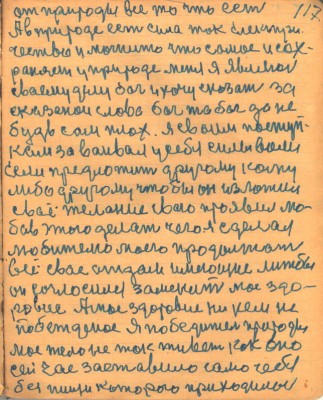 117
от природы все то что есть
А в природе есть сила ток електри-
чество и магнито что самое и сох-
раняет и природе меня я явился
своему дни бог и хочу сказать за
сказаной слова бог то бог да не
будь сам плох. я своим поступ-
кам завоевал у себя силы воли
если предложить другому кому
либо другому чтобы он изложил
своё желание свою проявил лю-
бовь этого делать чего я сделал
любителю моего продолжать
всё свое отдал имеющие лишь бы
он согласился заменить мое здо-
ровие А мое здоровие ни кем не
победимое Я победитель природы
мое тело не так живет как оно
сей час заставило само себя
без пищи которого приходилось